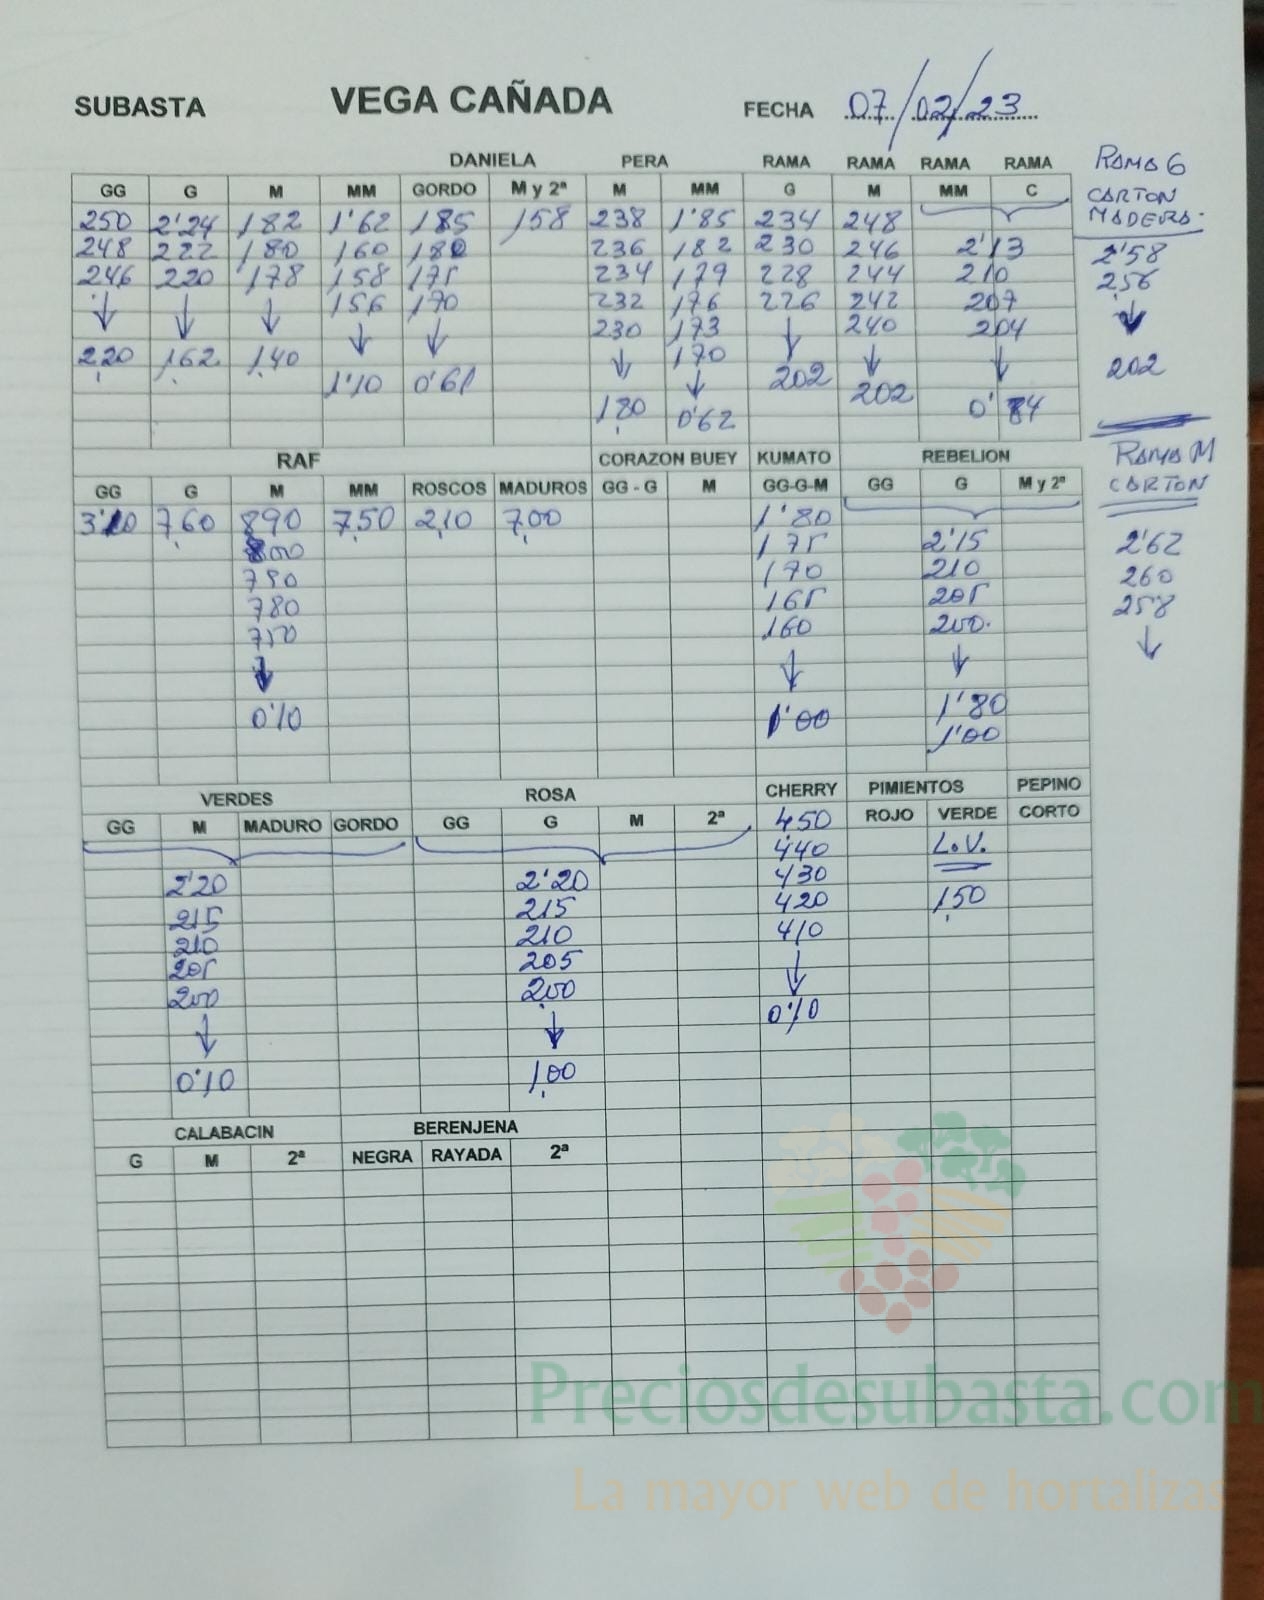 SUBASTA VEGA CAÑADA FECHA 07/02/23
DANIELA PERA RAMA RAMA RAMA RAMA RAMA G
GG G M MM GORDO M y 2ª M MM G M MM C CARTON
MADERA
250 2'24 182 1'62 185 158 238 1'85 234 248
248 222 180 160 180 236 182 230 246 2'13 2'58
246 220 178 158 175 234 179 228 244 210 256
↓ ↓ ↓ 156 170 232 176 226 242 207 ↓
↓ ↓ 230 173 ↓ 240 204
220 1,62 1,40 ↓ 170 ↓ ↓ 202
1'10 0'61 ↓ 202 202
180 0'62 0'84
RAF CORAZON BUEY KUMATO REBELION RAMA M
GG G M MM ROSCOS MADUROS GG - G M GG-G-M GG G M y 2ª CARTON
7,60 890 7,50 2,10 7,00 1'80
800 175 2'15 2'62
790 170 210 260
780 165 205 258
750 160 200. ↓
↓ ↓ ↓
0'10 1'00 1'80
1'00
VERDES ROSA CHERRY PIMIENTOS PEPINO
GG M MADURO GORDO GG G M 2ª 450 ROJO VERDE CORTO
440 L.V.
2'20 2'20 430
215 215 420 1,50
210 210 410
205 205 ↓
200 200 0'10
↓ ↓
0'10 1,00
CALABACIN BERENJENA
G M 2ª NEGRA RAYADA 2ª
Preciosdesubasta.com
La mayor web de hortalizas